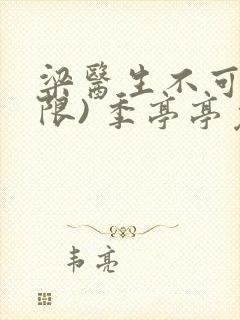 梁醫生不可
限)季亭亭
韦亮